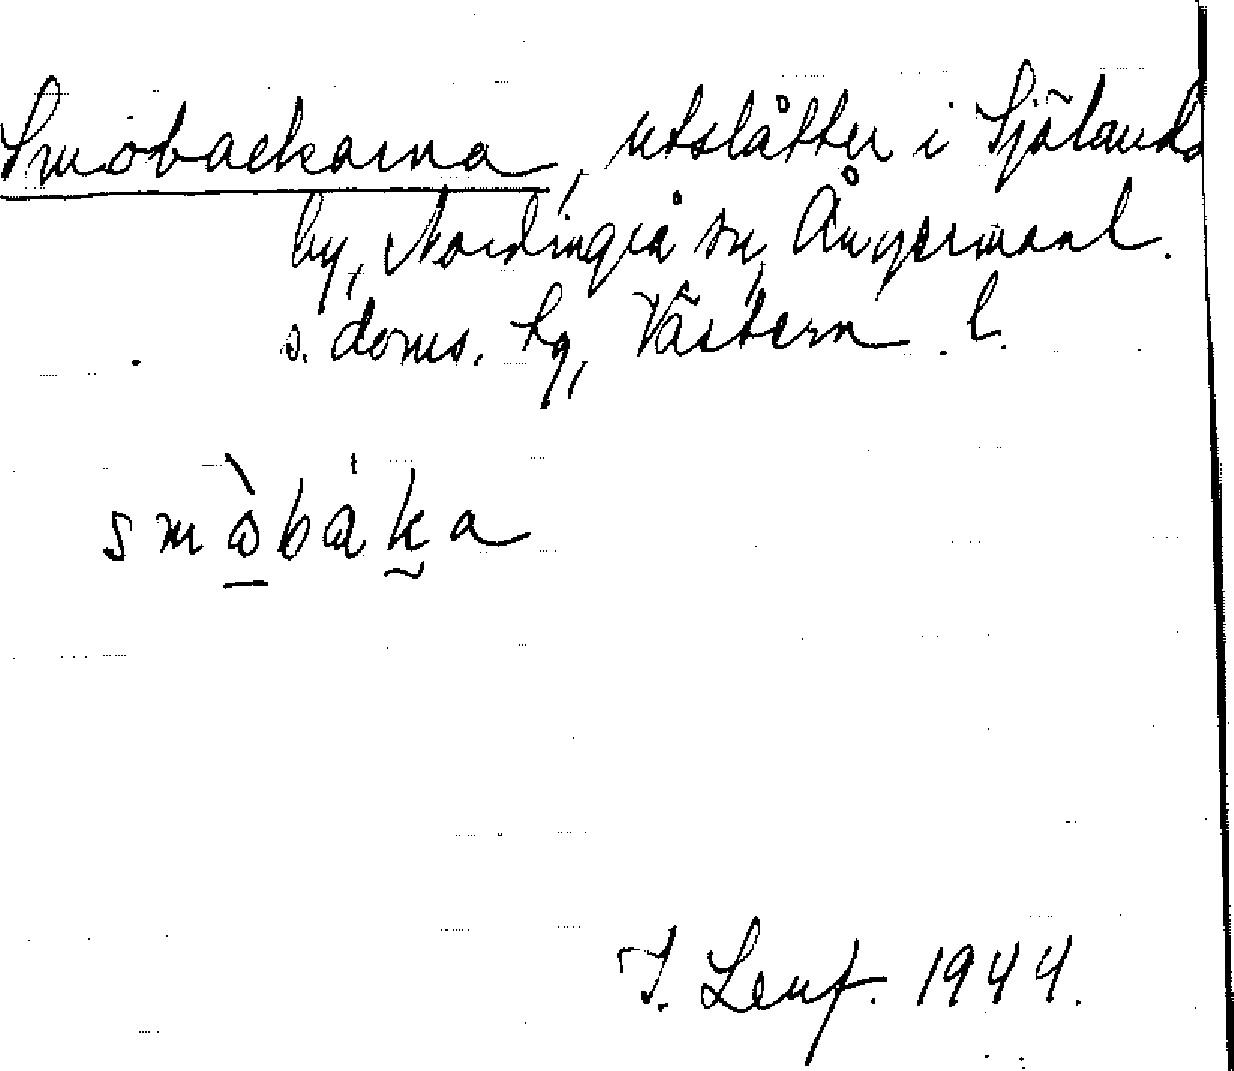 Småbackarna, utslåtter i Själands
by, Nordingrå sn, Ångermanl.
s. doms. hg, Västern. l.
småbaka
I. Lenf. 1944.